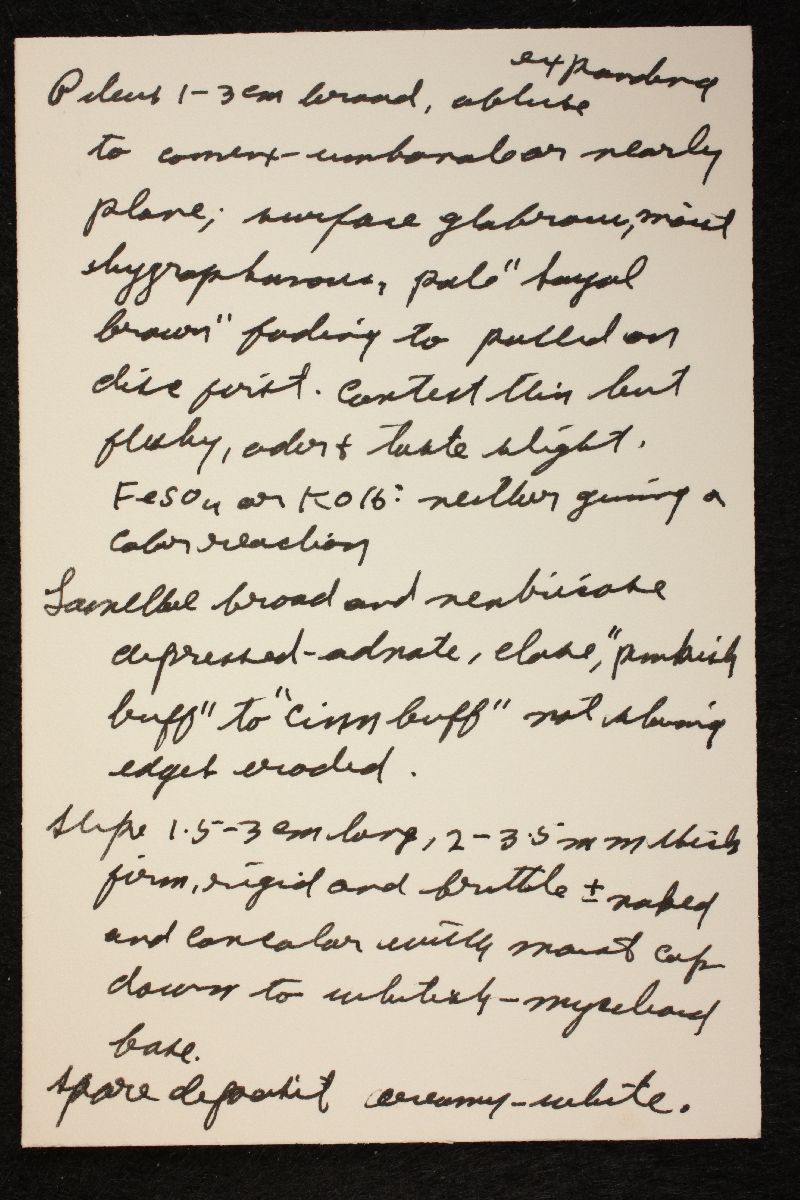 expanding
Pileus 1-3 cm broad, obtuse
to convex-umbonate or nearly
plane; surface glabrous, moist
hygrophanous, pale "sayal
brown" fading to pallid on
disc first. Context thin but
fleshy, odor & taste slight.
FeSO4 or KOH: neither giving a
color reaction
Lamellae broad and ventricose
depressed-adnate, close, "pinkish
buff" to "cinn buff" not staining
edges eroded.
Stipe 1.5-3 cm long, 2-3.5 mm thick
firm, rigid and brittle ± naked
and concolor with moist cap
down to whitish-myceloid
base.
Spore deposit creamy-white.